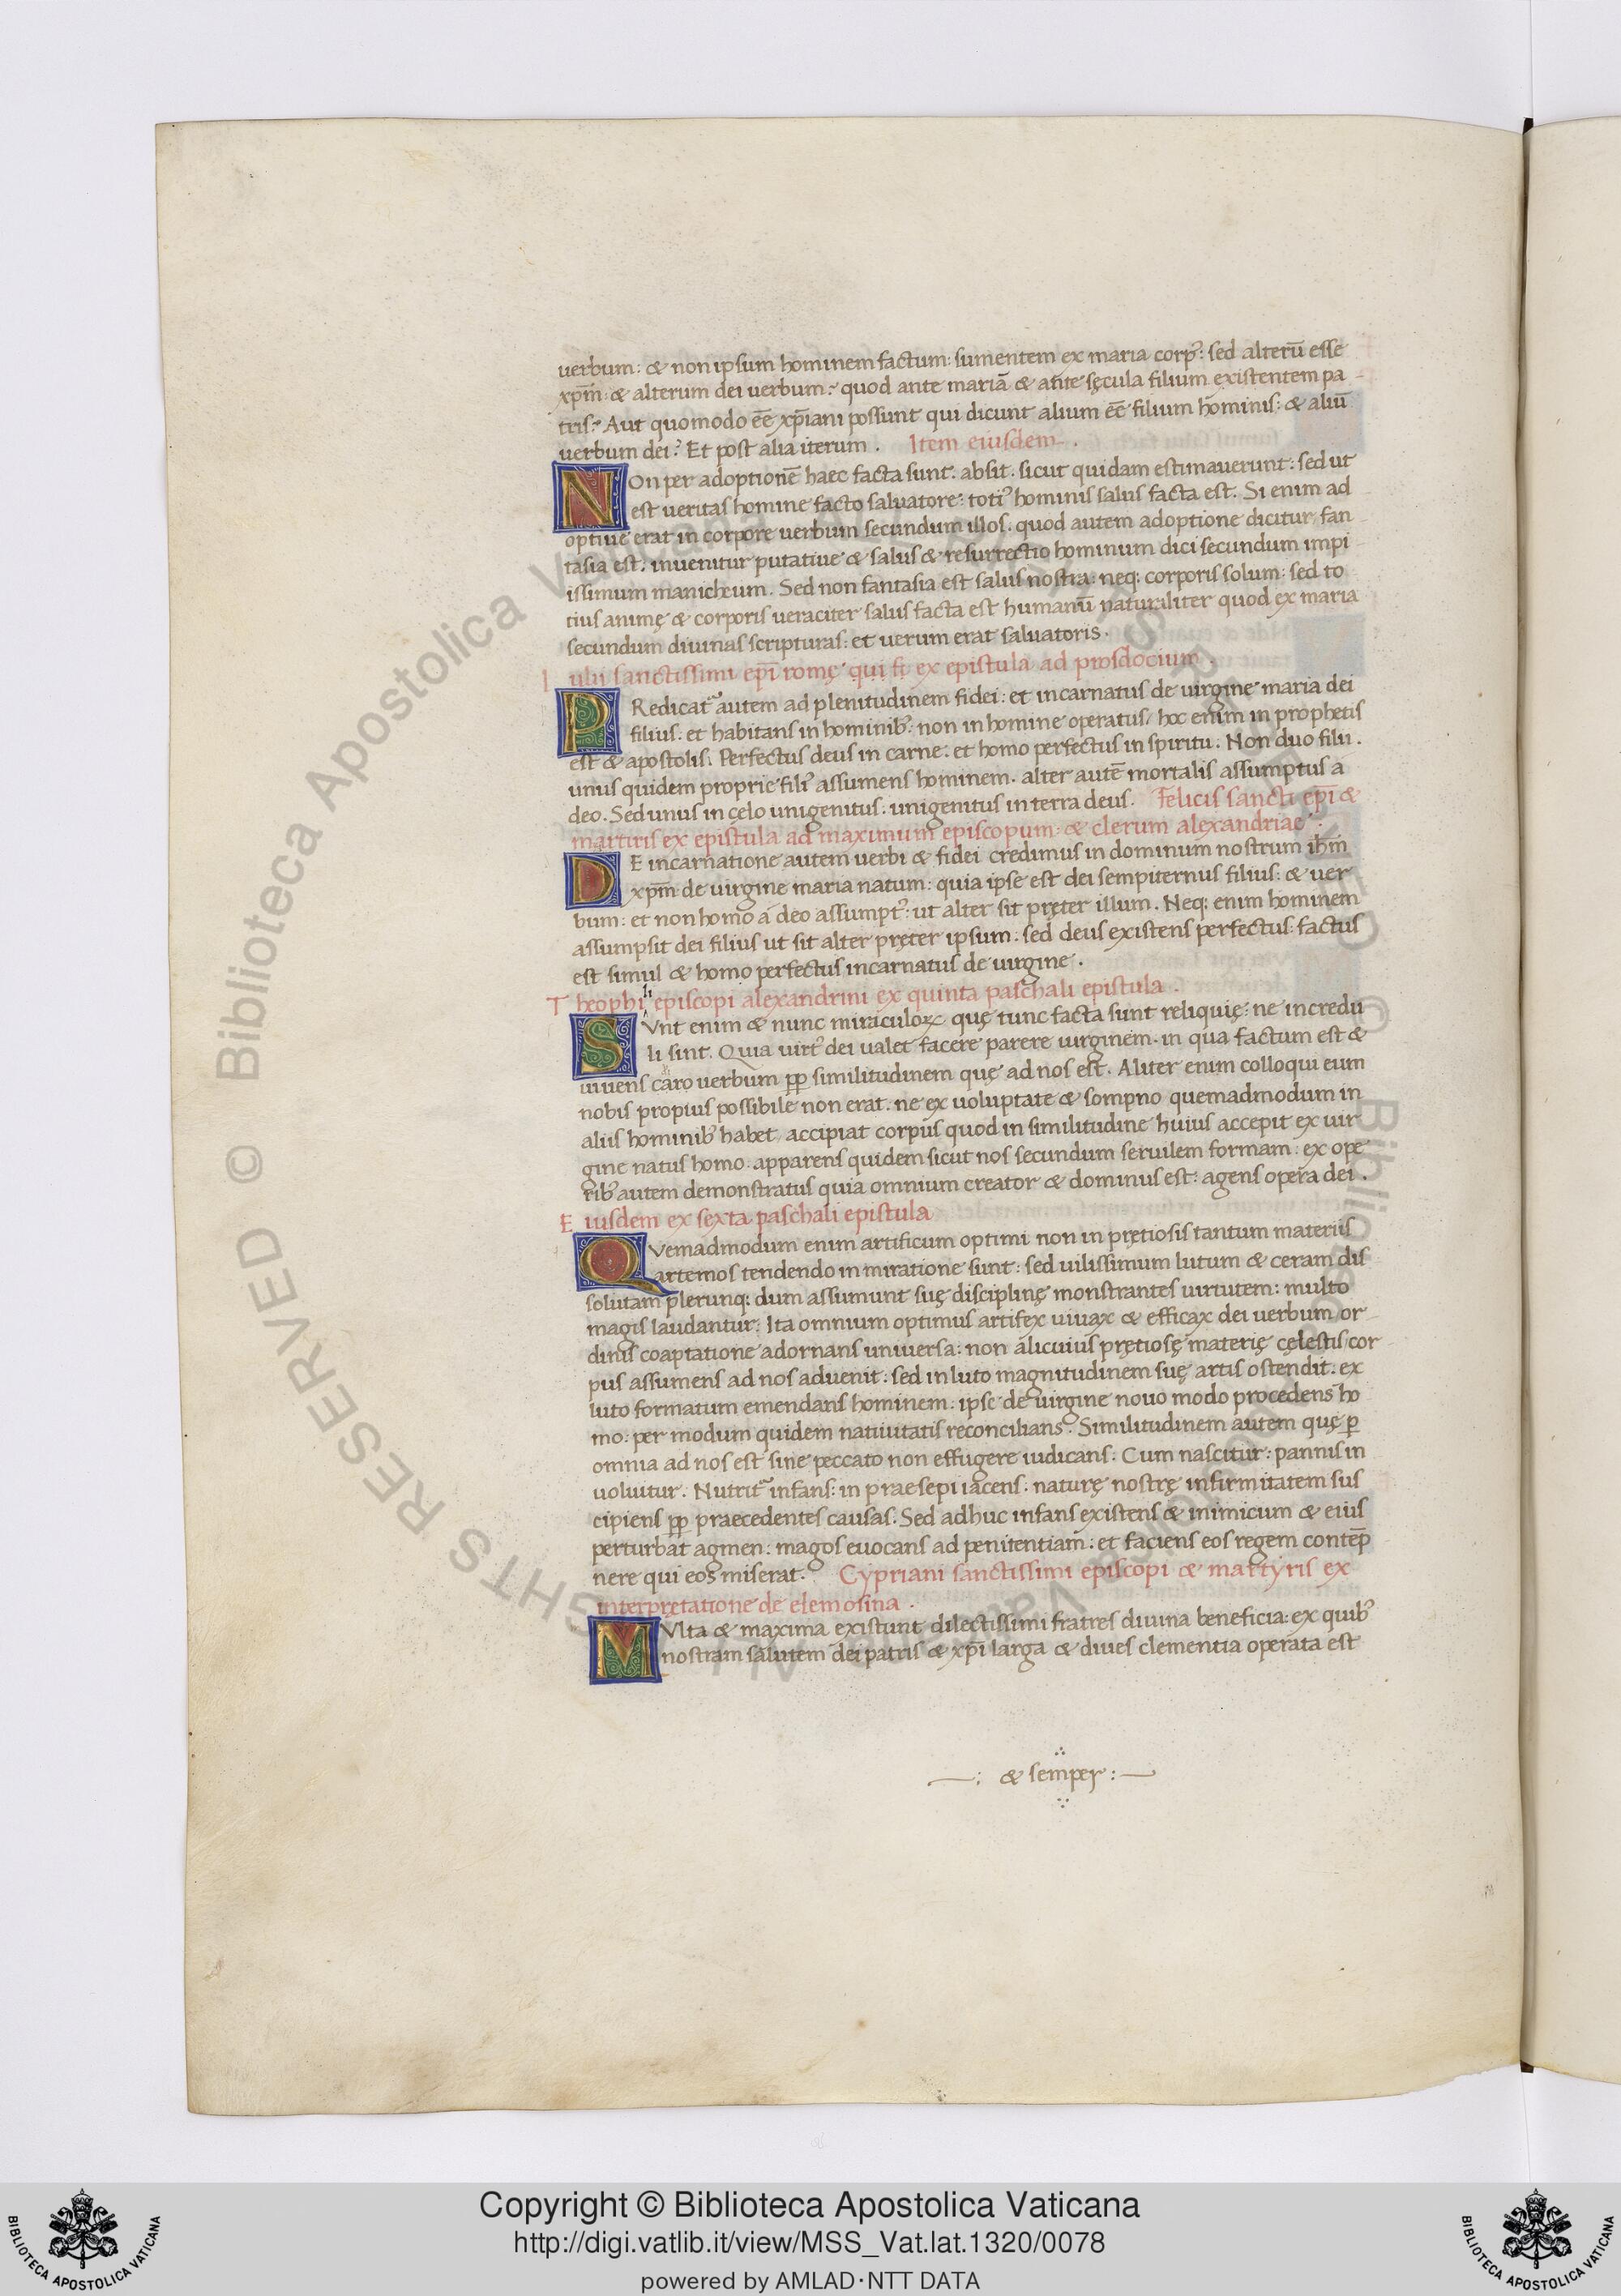 uerbum: & non ipsum hominem factum: sumentem ex maria corpꝰ: sed alterū esse
xp̄m: & alterum dei uerbum: quod ante mariā & ante sęcula filium existentem pa-
tris? Aut quomodo ēē xp̄iani possunt qui dicunt alium ēē filium hominis: & aliū
uerbum dei? Et post alia iterum. Item eiusdem.
NOn per adoptionē haec facta sunt. absit. sicut quidam estimauerunt: sed ut
est ueritas homine facto saluatore: totiꝰ hominis salus facta est. Si enim ad
optiue erat in corpore uerbum secundum illos. quod autem adoptione dicitur, fan
tasia est. inuenitur putatiue & salus & resurrectio hominum dici secundum impi
issimum manicheum. Sed non fantasia est salus nostra: neq; corporis solum: sed to
tius animę & corporis ueraciter salus facta est humanū naturaliter quod ex maria
secundum diuinas scripturas: et uerum erat saluatoris.
Iulii sanctissimi ep̄i romę qui fr̄ ex epistula ad prosdocium.
PRedicatᷣ autem ad plenitudinem fidei: et incarnatus de uirgine maria dei
filius: et habitans in hominibꝰ: non in homine operatus, hoc enim in prophetis
est & apostolis. Perfectus deus in carne: et homo perfectus in spiritu. Non duo filii.
unus quidem proprie filiꝰ assumens hominem. alter autē mortalis assumptus a
deo. Sed unus in cęlo unigenitus: unigenitus in terra deus. Felicis sancti ep̄i &
martiris ex epistula ad maximum episcopum: & clerum alexandriae.
DE incarnatione autem uerbi & fidei credimus in dominum nostrum ih̄m
xp̄m: de uirgine maria natum: quia ipse est dei sempiternus filius: & uer
bum: et non homo a deo assumptꝰ: ut alter sit pręter illum. Neq; enim hominem
assumpsit dei filius ut sit alter pręter ipsum. sed deus existens perfectus: factus
est simul & homo perfectus incarnatus de uirgine.
Theophili episcopi alexandrini ex quinta paschali epistula.
SVnt enim & nunc miraculoꝝ quę tunc facta sunt reliquię: ne incredu
li sint. Quia uirtꝰ dei ualet facere parere uirginem. in qua factum est &
uiuens caro uerbum pp̄ similitudinem quę ad nos est. Aliter enim colloqui eum
nobis propius possibile non erat. ne ex uoluptate & sompno quemadmodum in
aliis hominibꝰ habet, accipiat corpus quod in similitudine huius accepit ex uir
gine natus homo: apparens quidem sicut nos secundum seruilem formam: ex ope
ribꝰ autem demonstratus quia omnium creator & dominus est: agens opera dei.
Eiusdem ex sexta paschali epistula
QVemadmodum enim artificum optimi non in prętiosis tantum materiis
artem os tendendo in miratione sunt: sed uilissimum lutum & ceram dis
solutam plerunq; dum assumunt suę disciplinę monstrantes uirtutem: multo
magis laudantur: Ita omnium optimus artifex uiuax & efficax dei uerbum or-
dinis coaptatione adornans uniuersa: non alicuius prętiosę materię cęlestis cor
pus assumens ad nos aduenit: sed in luto magnitudinem suę artis ostendit. ex
luto formatum emendans hominem: ipse de uirgine nouo modo procedens ho
mo: per modum quidem natiuitatis reconcilians. Similitudinem autem quę ꝑ
omnia ad nos est sine peccato non effugere iudicans: Cum nascitur: pannis in
uoluitur. Nutritᷣ infans: in praesepi iacens: naturę nostrę infirmitatem sus
cipiens pp̄ praecedentes causas. Sed adhuc infans existens & inimicum & eius
perturbat agmen: magos euocans ad penitentiam: et faciens eos regem contēp
nere qui eos miserat. Cypriani sanctissimi episcopi & martyris ex
interpretatione de elemosina.
MVlta & maxima existunt dilectissimi fratres diuina beneficia: ex quibꝰ
nostram salutem dei patris & xp̄i larga & diues clementia operata est
& semper:
Copyright © Biblioteca Apostolica Vaticana
http://digi.vatlib.it/view/MSS_Vat.lat.1320/0078
powered by AMLAD·NTT DATA